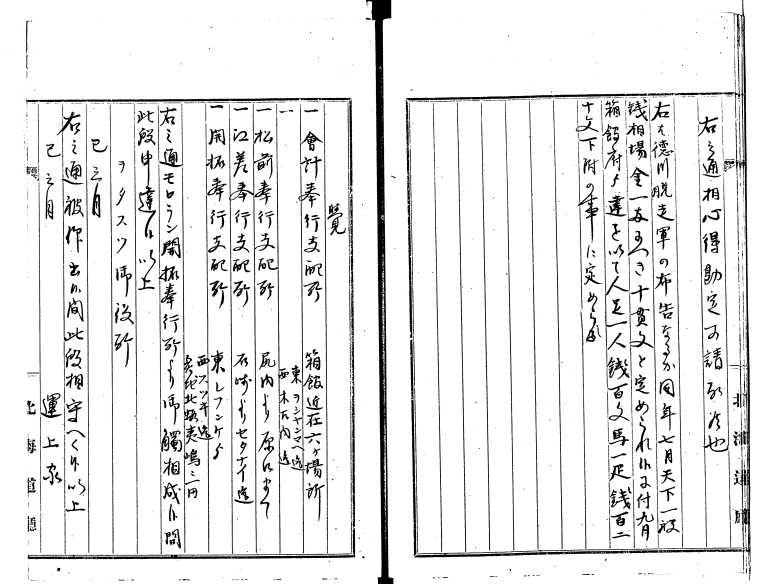 右之通相心得勘定可請取候也
右は徳川脱走軍の布告なるか同年七月天下一般
銭相場金一両につき十貫文と定められ候に付九月
箱館府より達を以て人足一人銭百文馬一疋銭百二
十文下附の事に定めらる
北海道庁
覚
一會計奉行支配所 箱館近在六ヶ場所
一 東ヲシャマンヘ迄 西木古内迄
一松前奉行支配所 尻内より原口まて
一江差奉行支配所 石崎よりセタナイ迄
一開拓奉行支配所 東レブンケより 西スツキ迄
右之通モロラン開拓奉行所より御觸相成候間
此段申達候以上
巳三月
ヲタスツ御役所
右之通被仰出候間此段相守へく候以上
巳三月 運上家
北海道廳